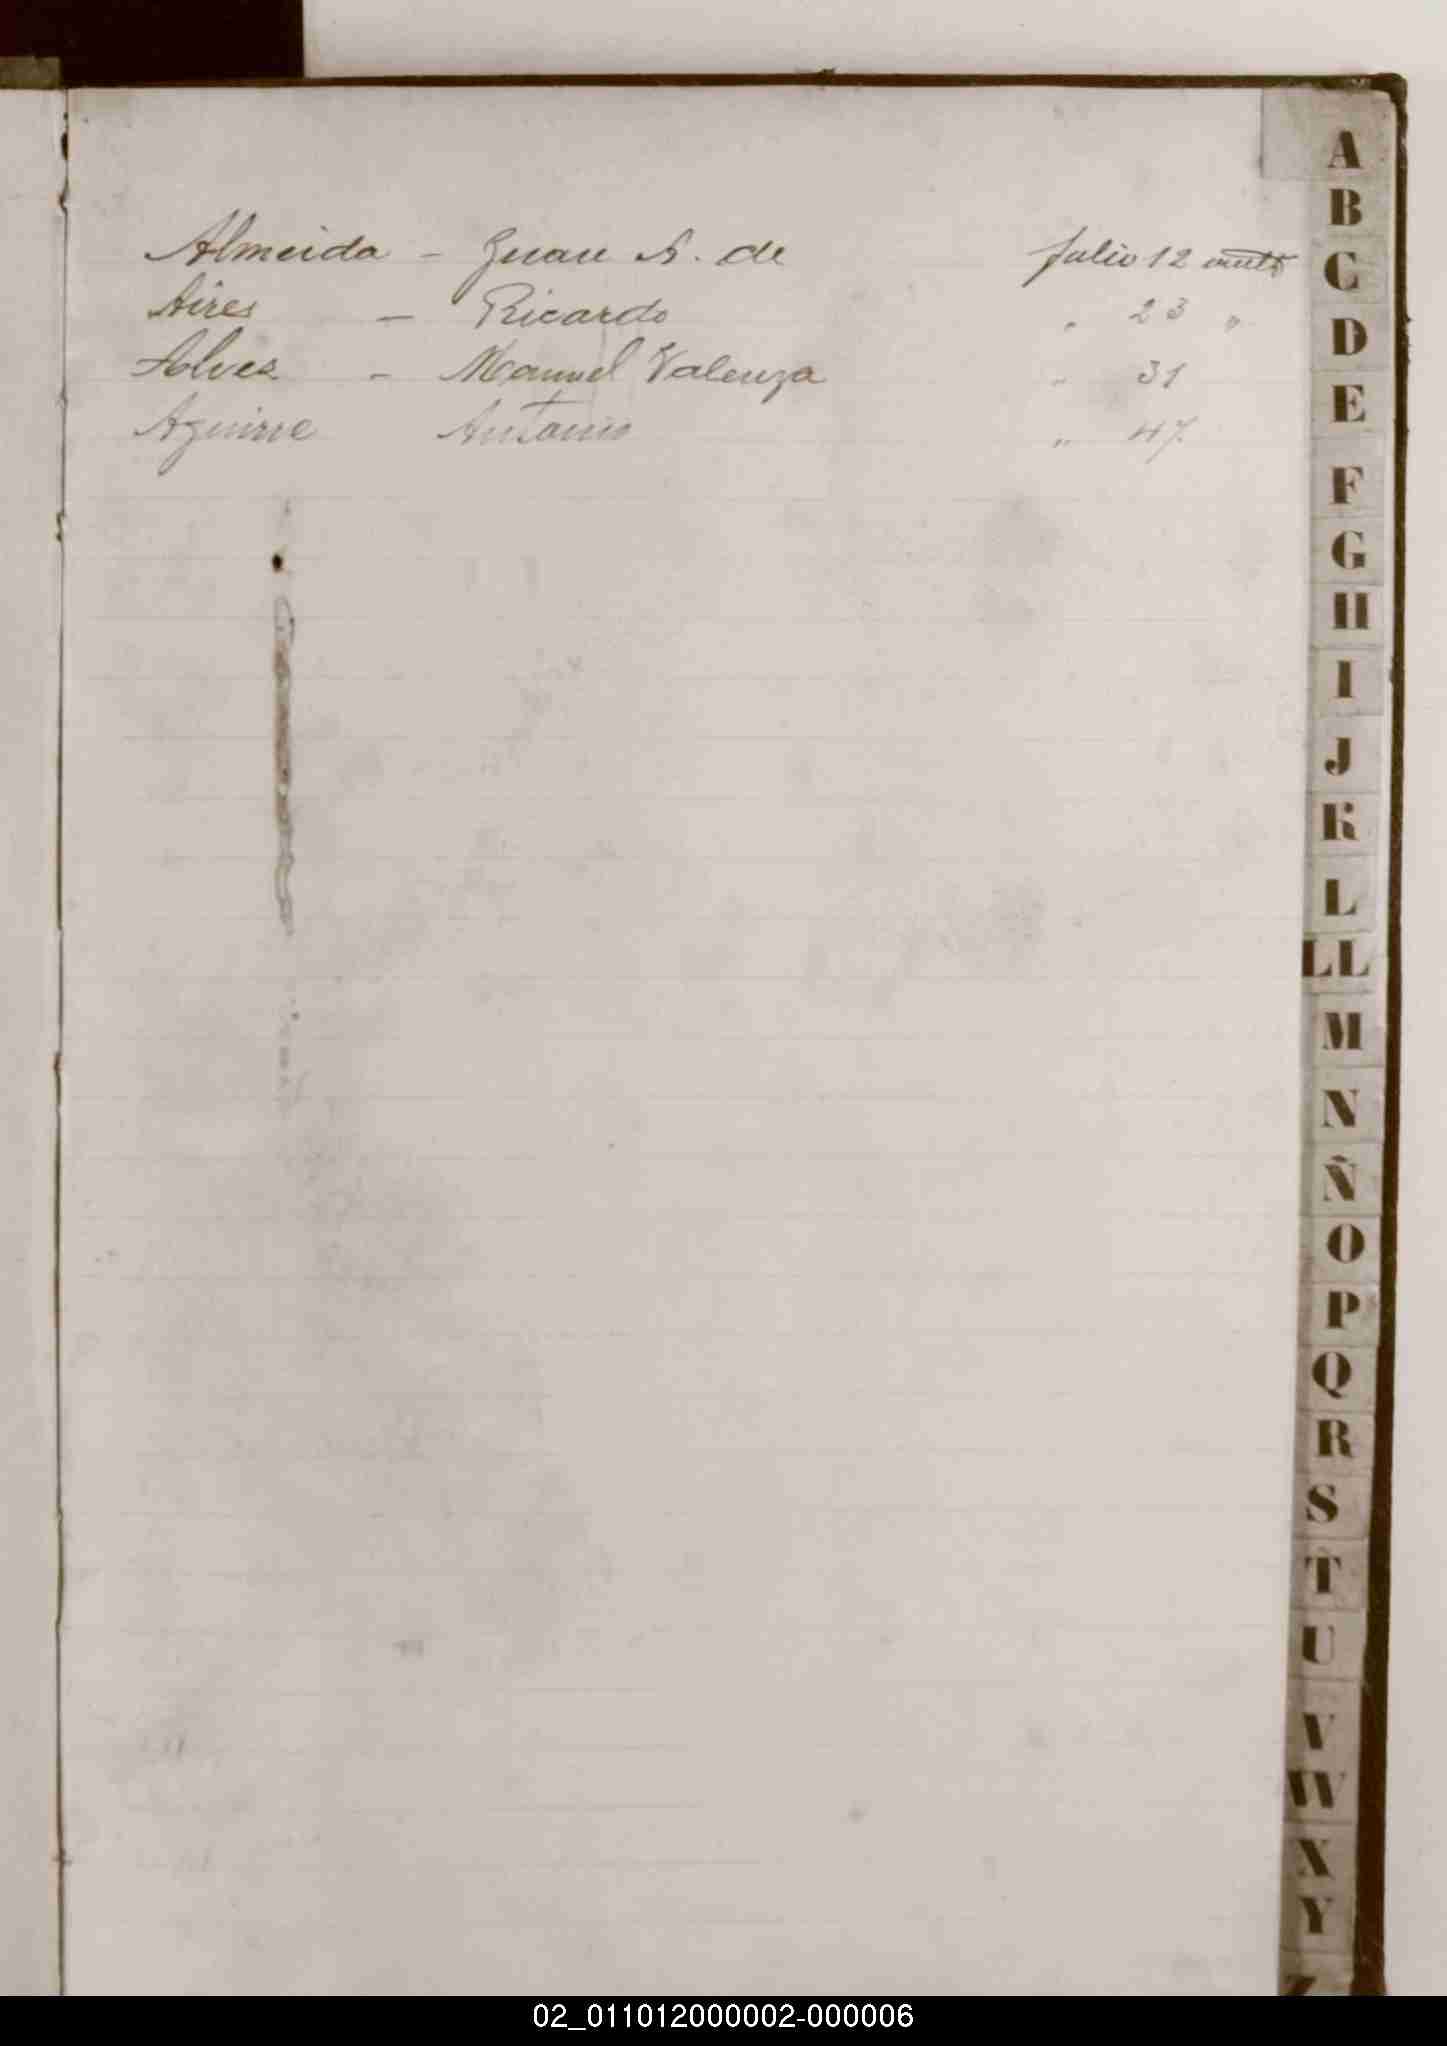 Almeida - Juan A. de folio 12 vuelto
Aires - Ricardo " 23 "
Alves - Manuel Valenza " 31
Aguirre Antonio " 47
A
B
C
D
E
F
G
H
I
J
K
L
LL
M
N
Ñ
O
P
Q
R
S
T
U
V
W
X
Y
Z
02_011012000002-000006